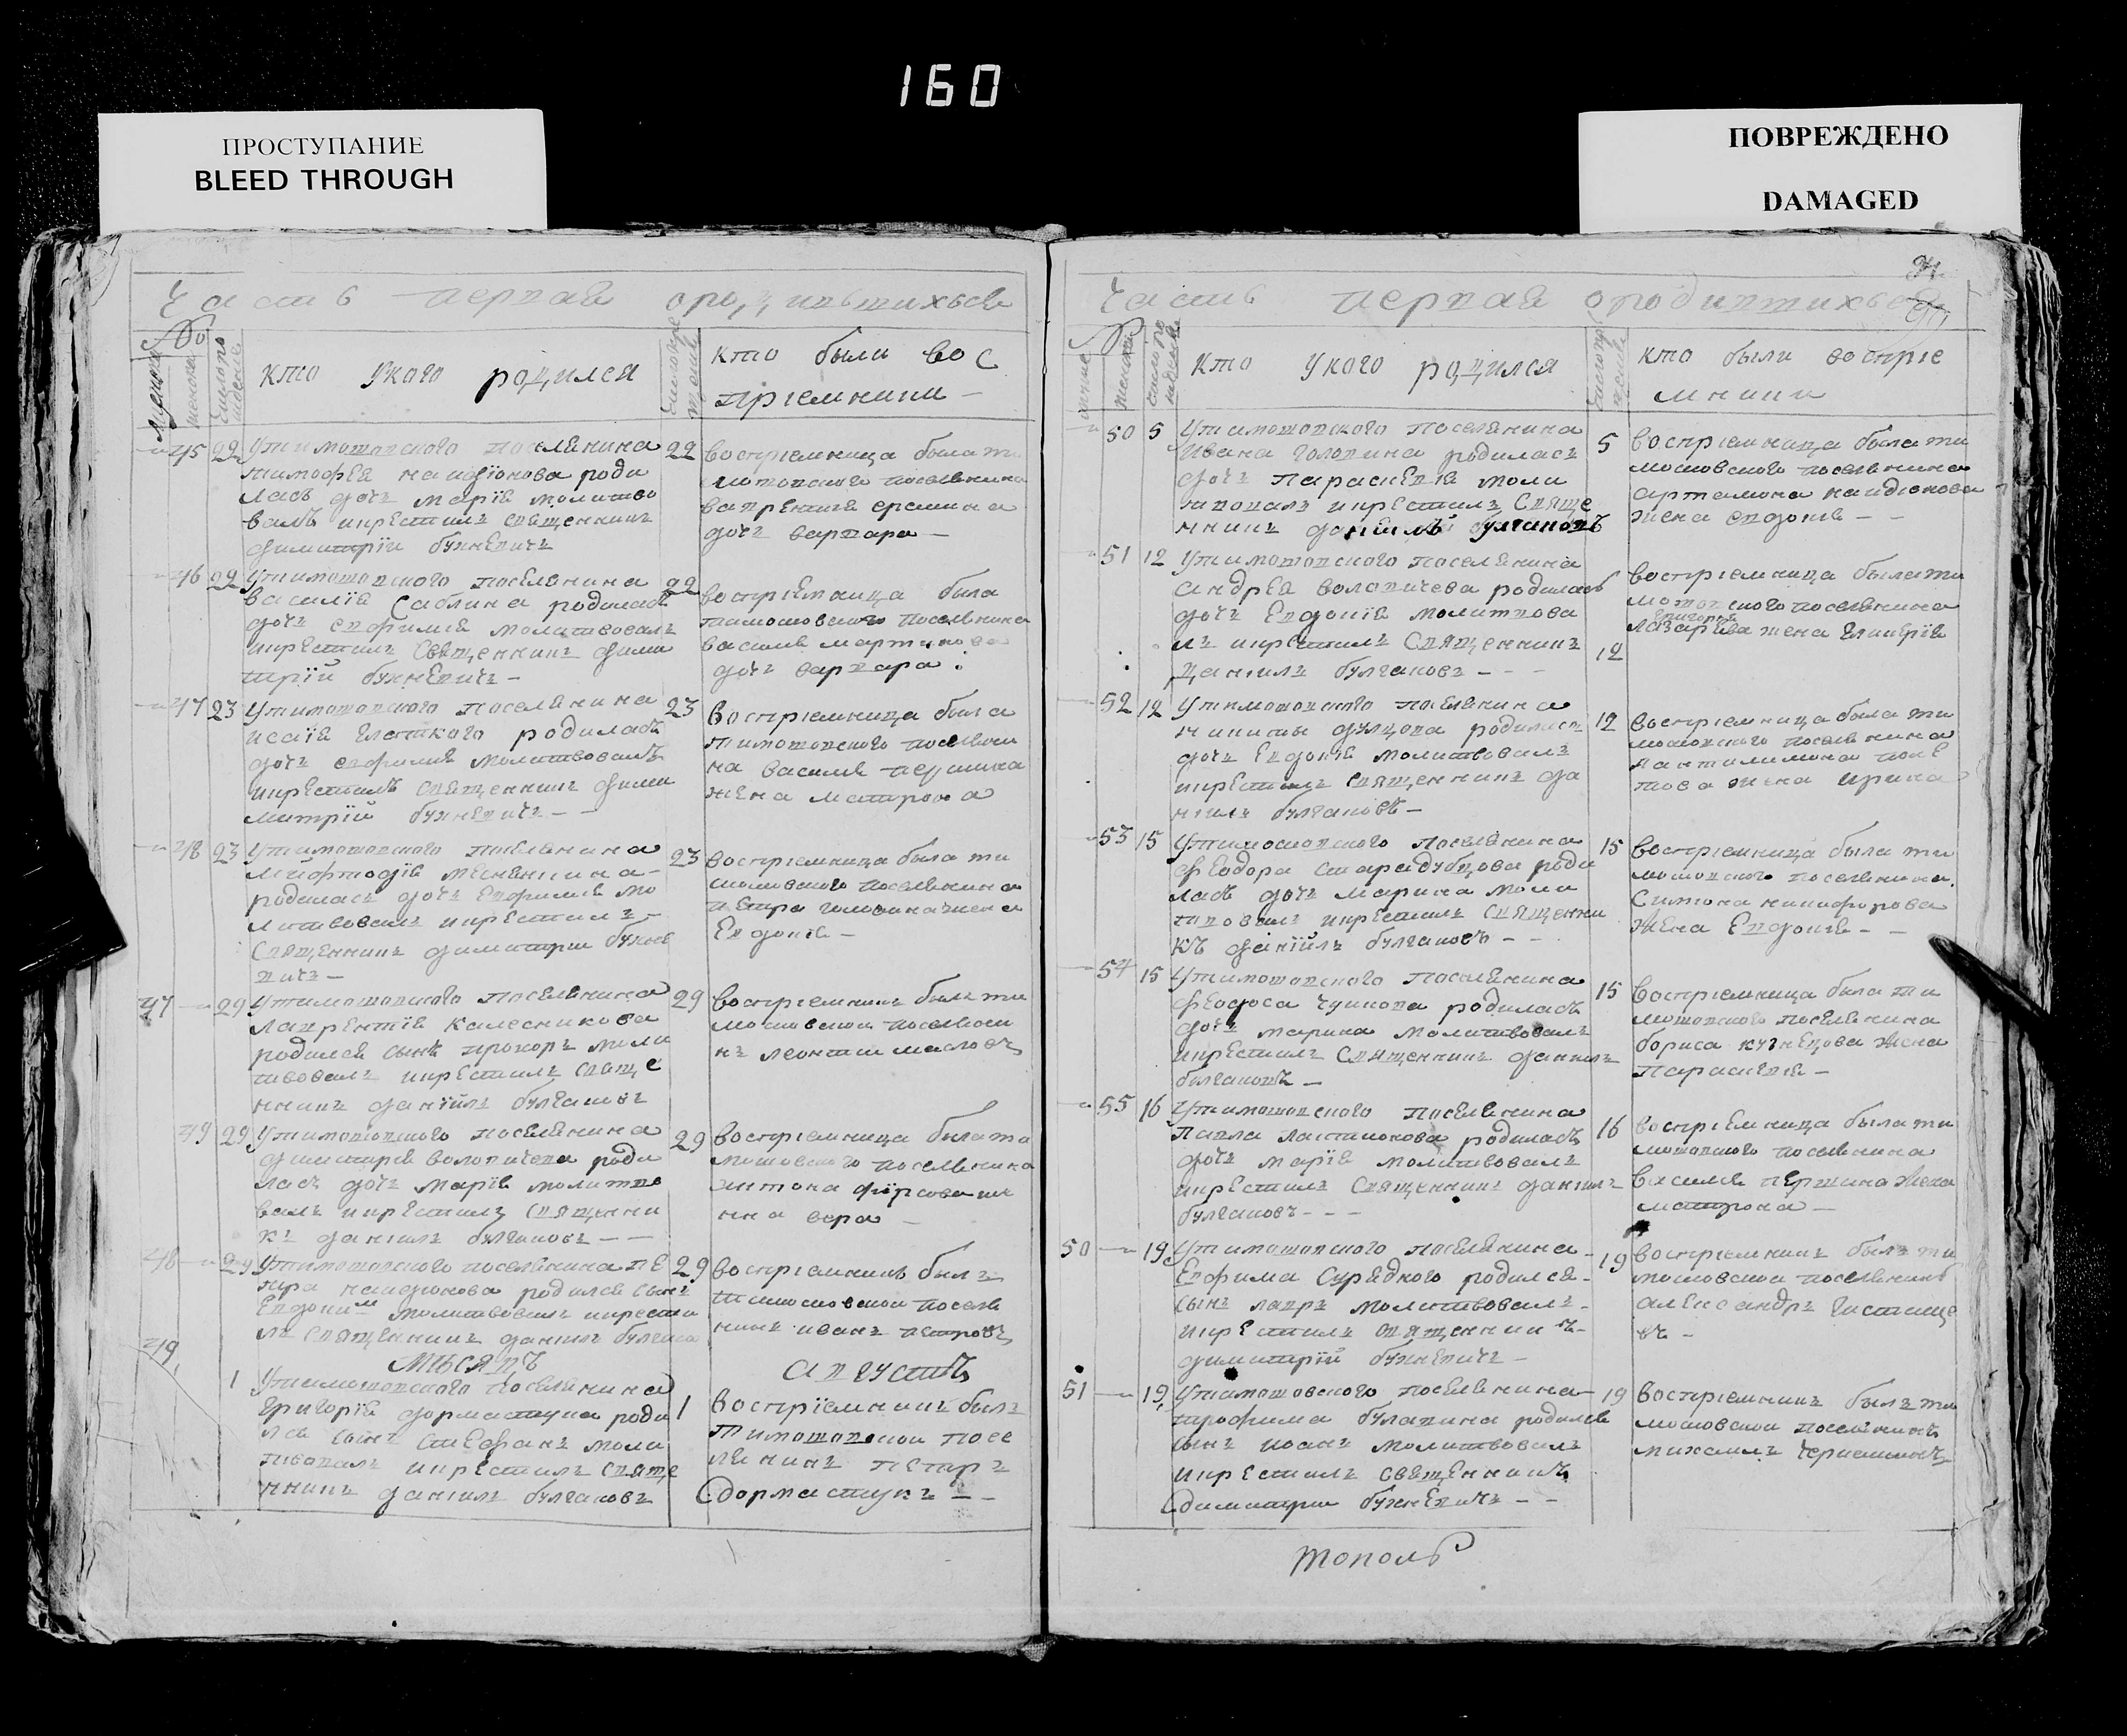 160
ПРОСТУПАНИЕ
BLEED THROUGH
ПОВРЕЖДЕНО
DAMAGED
часть первая
№
кто У кого родился
кто были вос
прiемники —
45 22 У тимошовского поселянина
тимофея наидионова роди
лась дочь марiя молитво
валъ и крестилъ священникъ
димитрiй бухневичъ
22 воспрiемница была ти
мошовского поселянина
ваврентия
дочь варвара —
46 22 У тимошовского поселянина
василiя Саблина родилась
дочь евфимiя молитвовалъ
и крестилъ Священникъ дими
трiй бухневичъ —
22 воспрiемница была
тимошовского поселянина
василя мартинова
дочь варвара
47 23 У тимошовского поселянина
исаiя гладкого родилась
дочь евфимия молитвовалъ
и крестилъ священникъ дими
митрiй бухневичъ —
23 воспрiемница была
тимошовского поселяни
на василя першина
жена матрона
48 23 У тимошовского поселянина
родилась дочь Евфимiя мо
литвовалъ и крестилъ —
Священникъ димитрiи бухне
вичъ —
23 воспрiемница была ти
мошовского поселянина
петра жена
Евдокiя —
47 29 У тимошовского поселянина
лаврентiя калесникова
родился сынъ прохоръ моли
твовалъ и крестилъ свяще
нникъ данiилъ булгаковъ
29 воспрiемникъ былъ ти
мошовской поселяни
нъ леонтий масловъ
49 29 У тимошовского поселянина
димитрiя воловичева роди
лась дочь марiя молитво
валъ и крестилъ священни
къ данiилъ булгаковъ — —
29 воспрiемница была ти
мошовского поселянина
антона фiрсова же
нна вера —
48 29 У тимошовского поселянина пе
тра наидионова родился сынъ
Евдокимъ молитвовалъ и крести
лъ священникъ данiилъ булгако
29 воспрiемникъ былъ
тимошовской поселя
нинъ иванъ петровъ
мњсяцъ августъ
49 1 У тимошовского поселянина
григорiя дормастука роди
лся сынъ стефанъ моли
твовалъ и крестилъ свяще
нникъ данiилъ булгаковъ
1 воспрiемникъ былъ
тимошовской посе
лянинъ петаръ
дормастукъ — —
часть первая о родившихься
№
кто У кого родился
кто были воспрiе
мники
50 5 У тимошовского поселянина
Ивана головина родилась
дочь параскевiя моли
твовалъ и крестилъ Свяще
нникъ данiилъ булгаковъ
5 воспрiемница была ти
мошовского поселянина
артемона наидионова
жена евдокiя — —
51 12 У тимошовского поселянина
андрея воловичева родилась
дочь Евдокiя молитвова
лъ и крестилъ Священникъ
Данiилъ булгаковъ — — —
12 воспрiемница была ти
мошовского поселянина
григорiя
лазарева жена гликерiя
52 12 У тимошовского поселянина
никиты дулцова родилась
дочь Евдокiя молитвовалъ
и крестилъ священникъ да
нiилъ булгаковъ —
12 воспрiемница была ти
мошовского поселянина
пантилимона
жена ирина
53 15 У тимошовского поселянина
феодора стародубцова роди
лась дочь марина моли
твовалъ и крестилъ священни
къ данiилъ булгаковъ — —
15 воспрiемница была ти
мошовского поселянина
Симiона никифорова
жена Евдокiя — —
54 15 У тимошовского поселянина
феодоса чуикова родилась
дочь марина молитвовалъ
и крестилъ Священникъ данiилъ
булгаковъ —
15 воспрiемница была ти
мошовского поселянина
бориса кузнецова жена
параскевiя —
55 16 У тимошовского поселянина
павла родилась
дочь марiя молитвовалъ
и крестилъ Священникъ данiилъ
булгаковъ — — —
16 воспрiемница была ти
мошовского поселянина
василя першина жена
матрона —
50 19 У тимошовского поселянина
Евфима Сурядного родился
сынъ лавръ молитвовалъ
и крестилъ священникъ
димитрiй бухневичъ —
19 воспрiемникъ былъ ти
мошовской поселянинъ
александръ чистяце
въ —
51 19 У тимошовского поселянина
трофима булавина родился
сынъ иоанъ молитвовалъ
и крестилъ священникъ
димитрiи бухневичъ — —
19 воспрiемникъ былъ ти
мошовской поселянинъ
михаилъ
тополь